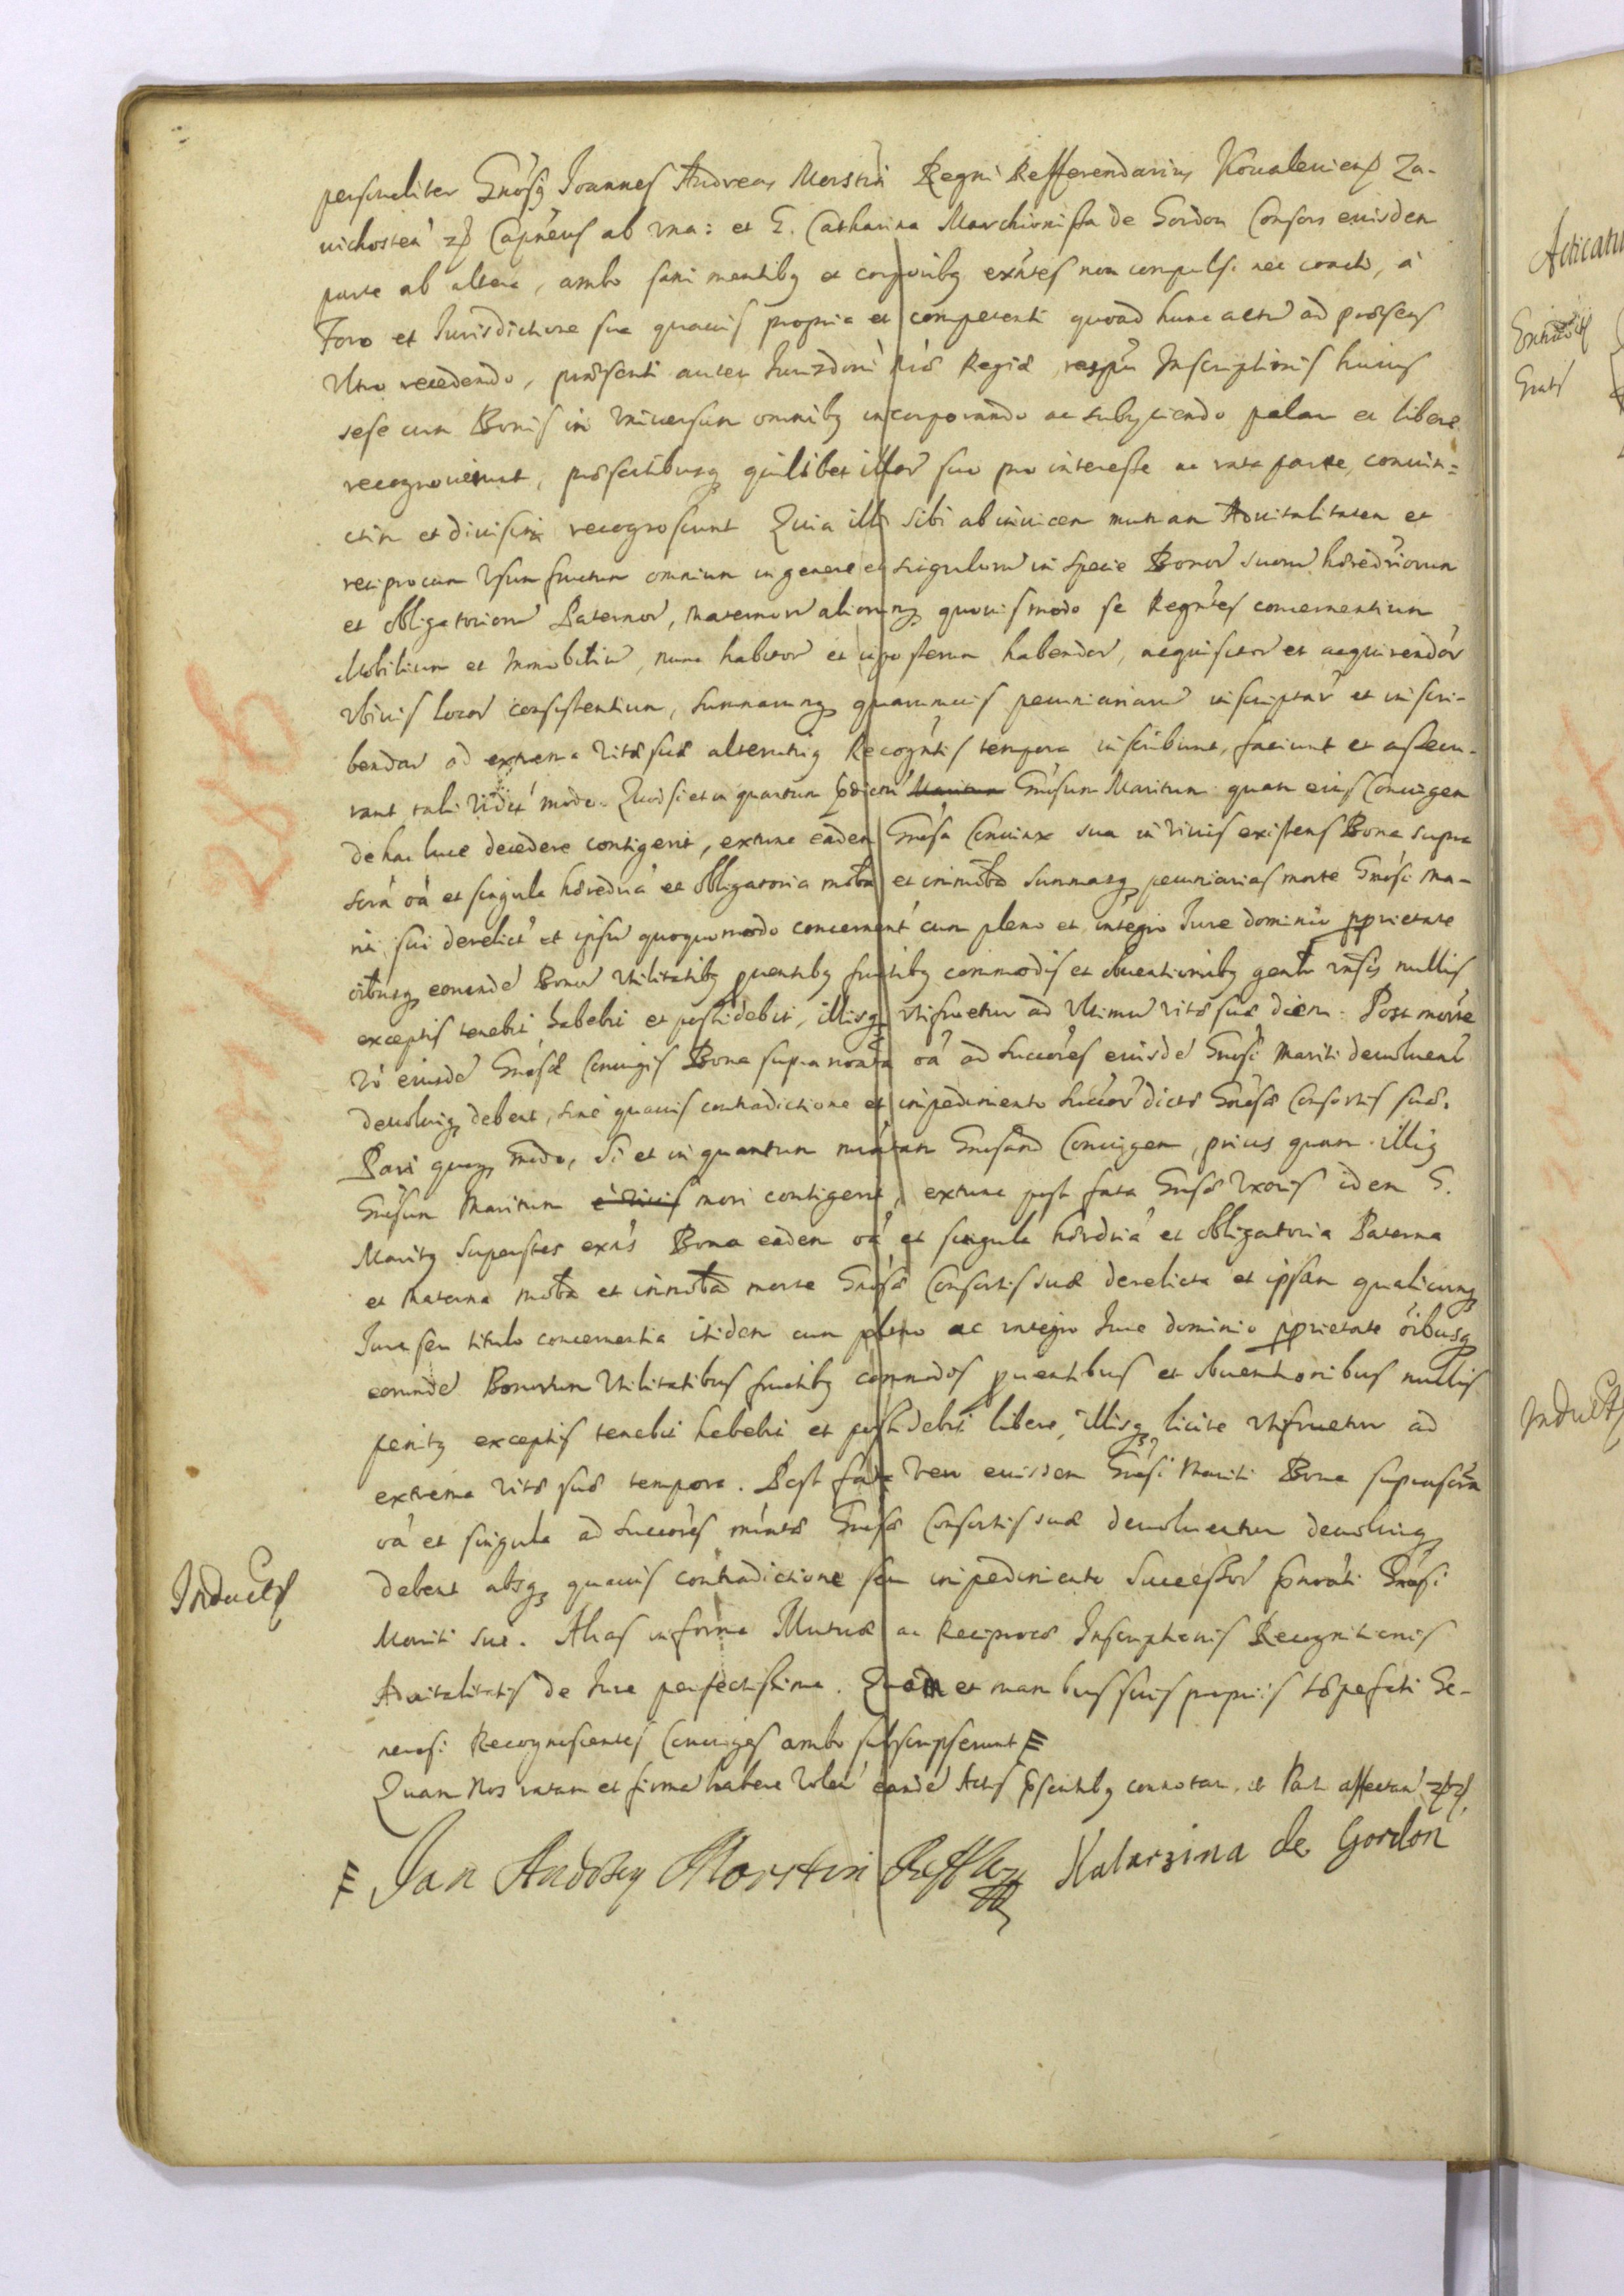 personaliter Gnōsq Joannes Andreas Morstin Regni Refferendarius Kovaleviens Za-
wichosten zp Capneus ab vna: et G. Catharina Marchionissa de Gordon Consors eiusdem
parte ab altera, ambo sani mentibq et corporibq exñtes non compulsi nec coacti, à
Foro et Jurisdictione sua quavis propria et competenti quoad hunc actū ad præsens
Vltro recedendo, præsenti autem Jurisdōni Regiæ respū Inscriptionis huius
sese cum Bonis in vniversum omnibq incorporando ac subyciendo palam et libere
recognoverunt, præsentibusq quilibet illoř suo pro interesse ac rata parte, coniun=
ctim et divisim recognoscunt Quia illi sibi ab invicem mutuam Advitalitatem et
reciprocum Vsumfructum omnium in genere et singulorū in specie Bonoř suorū hæredřiorum
et obligatoriorū Paternoř, Maternorū aliorumq quovismodo se Regñtes concernentium
Mobilium et Immobiliū, nunc habitoř et in posterum habendoř, acquisitoř et acquirendoř
Vbivis locoř consistentium, summarumq quarumvis pecuniariarū inscriptař et inscri-
bendař ad extrema Vitæ suæ alterutriq Recogñtis tempora inscribunt, faciunt et assecu-
rant tali Vidēt modo. Quod si et in quantum p̄dictū Gnōsum Maritum quam eius Coniugem
de hac luce decedere contigerit, extunc eadem Gnōsa Coniunx sua in vivis existens Bona supra
scrā oā et singula hæredriā et obligatoria mobā et immobā summasq pecuniarias morte Gnōsi Ma-
riti sui derelict et ipsū quoquomodo concernent cum pleno et integro Jure dominio pprietate
oībusq eorundē Bonoř Vtilitatibq pventibq fructibq commodis et obventionibq gentr vnsis nullis
exceptis tenebit habebit et possidebit, illisq vtifruetur ad Vltimū vitæ suæ diem. Post mortē
Vō eiusdē Gnōsæ Coniugis Bona supranoāta oā ad succōres eiusdē Gnōsi Mariti devoluent
devolviq debent, sine quavis contradictione et impedimento succōř dictæ Gnōsæ Consortis suæ.
Pari quoq modo, si et in quantum minātam Gnosam Coniugem, prius quam illiq
Gnōsum Maritum e vivis mori contigerit, extunc post fata Gnōsæ Vxoris idem G.
Maritq superstes exñs Bona eadem oā et singula hæredriā et obligatoria Paterna
et Materna mobā et immobā morte Gnōsæ Consortis suæ derelicta et ipsam qualicunq
Jure seu titulo concernentia itidem cum pleno ac integro Jure dominio pprietate oībusq
eorundē Bonorum Vtilitatibus fructibq commodos pventibus et obventionibus nullis
penitq exceptis tenebit habebit et possidebit libere, illisq licite vtifruetur ad
extrema vitæ suæ tempora. Post fata Vero eiusdem Gnōsi Mariti Bona suprascrā
oā et singula ad succōres minātæ Gnōsæ Consortis suæ devoluentur devolviq
debent absq quavis contradictione seu impedimento Successoř p̄noāti Gnōsi
Mariti sui. Alias in forma Mutuæ ac Reciprocæ Inscriptionis Recognitionis
Advitalitatis de Jure perfectissima. Quam et manibus suis propriis præfati Ge-
nerosi Recognoscentes Coniuges ambo subscripserunt
Quam Nos ratam et firmā habere volen eandē Actis p̄sentibq connotari, et Parti affectan
Jan Andrzey Morstin Reff Katarzina de Gordon
Inducts
Acticatu
Gratis
Inducts